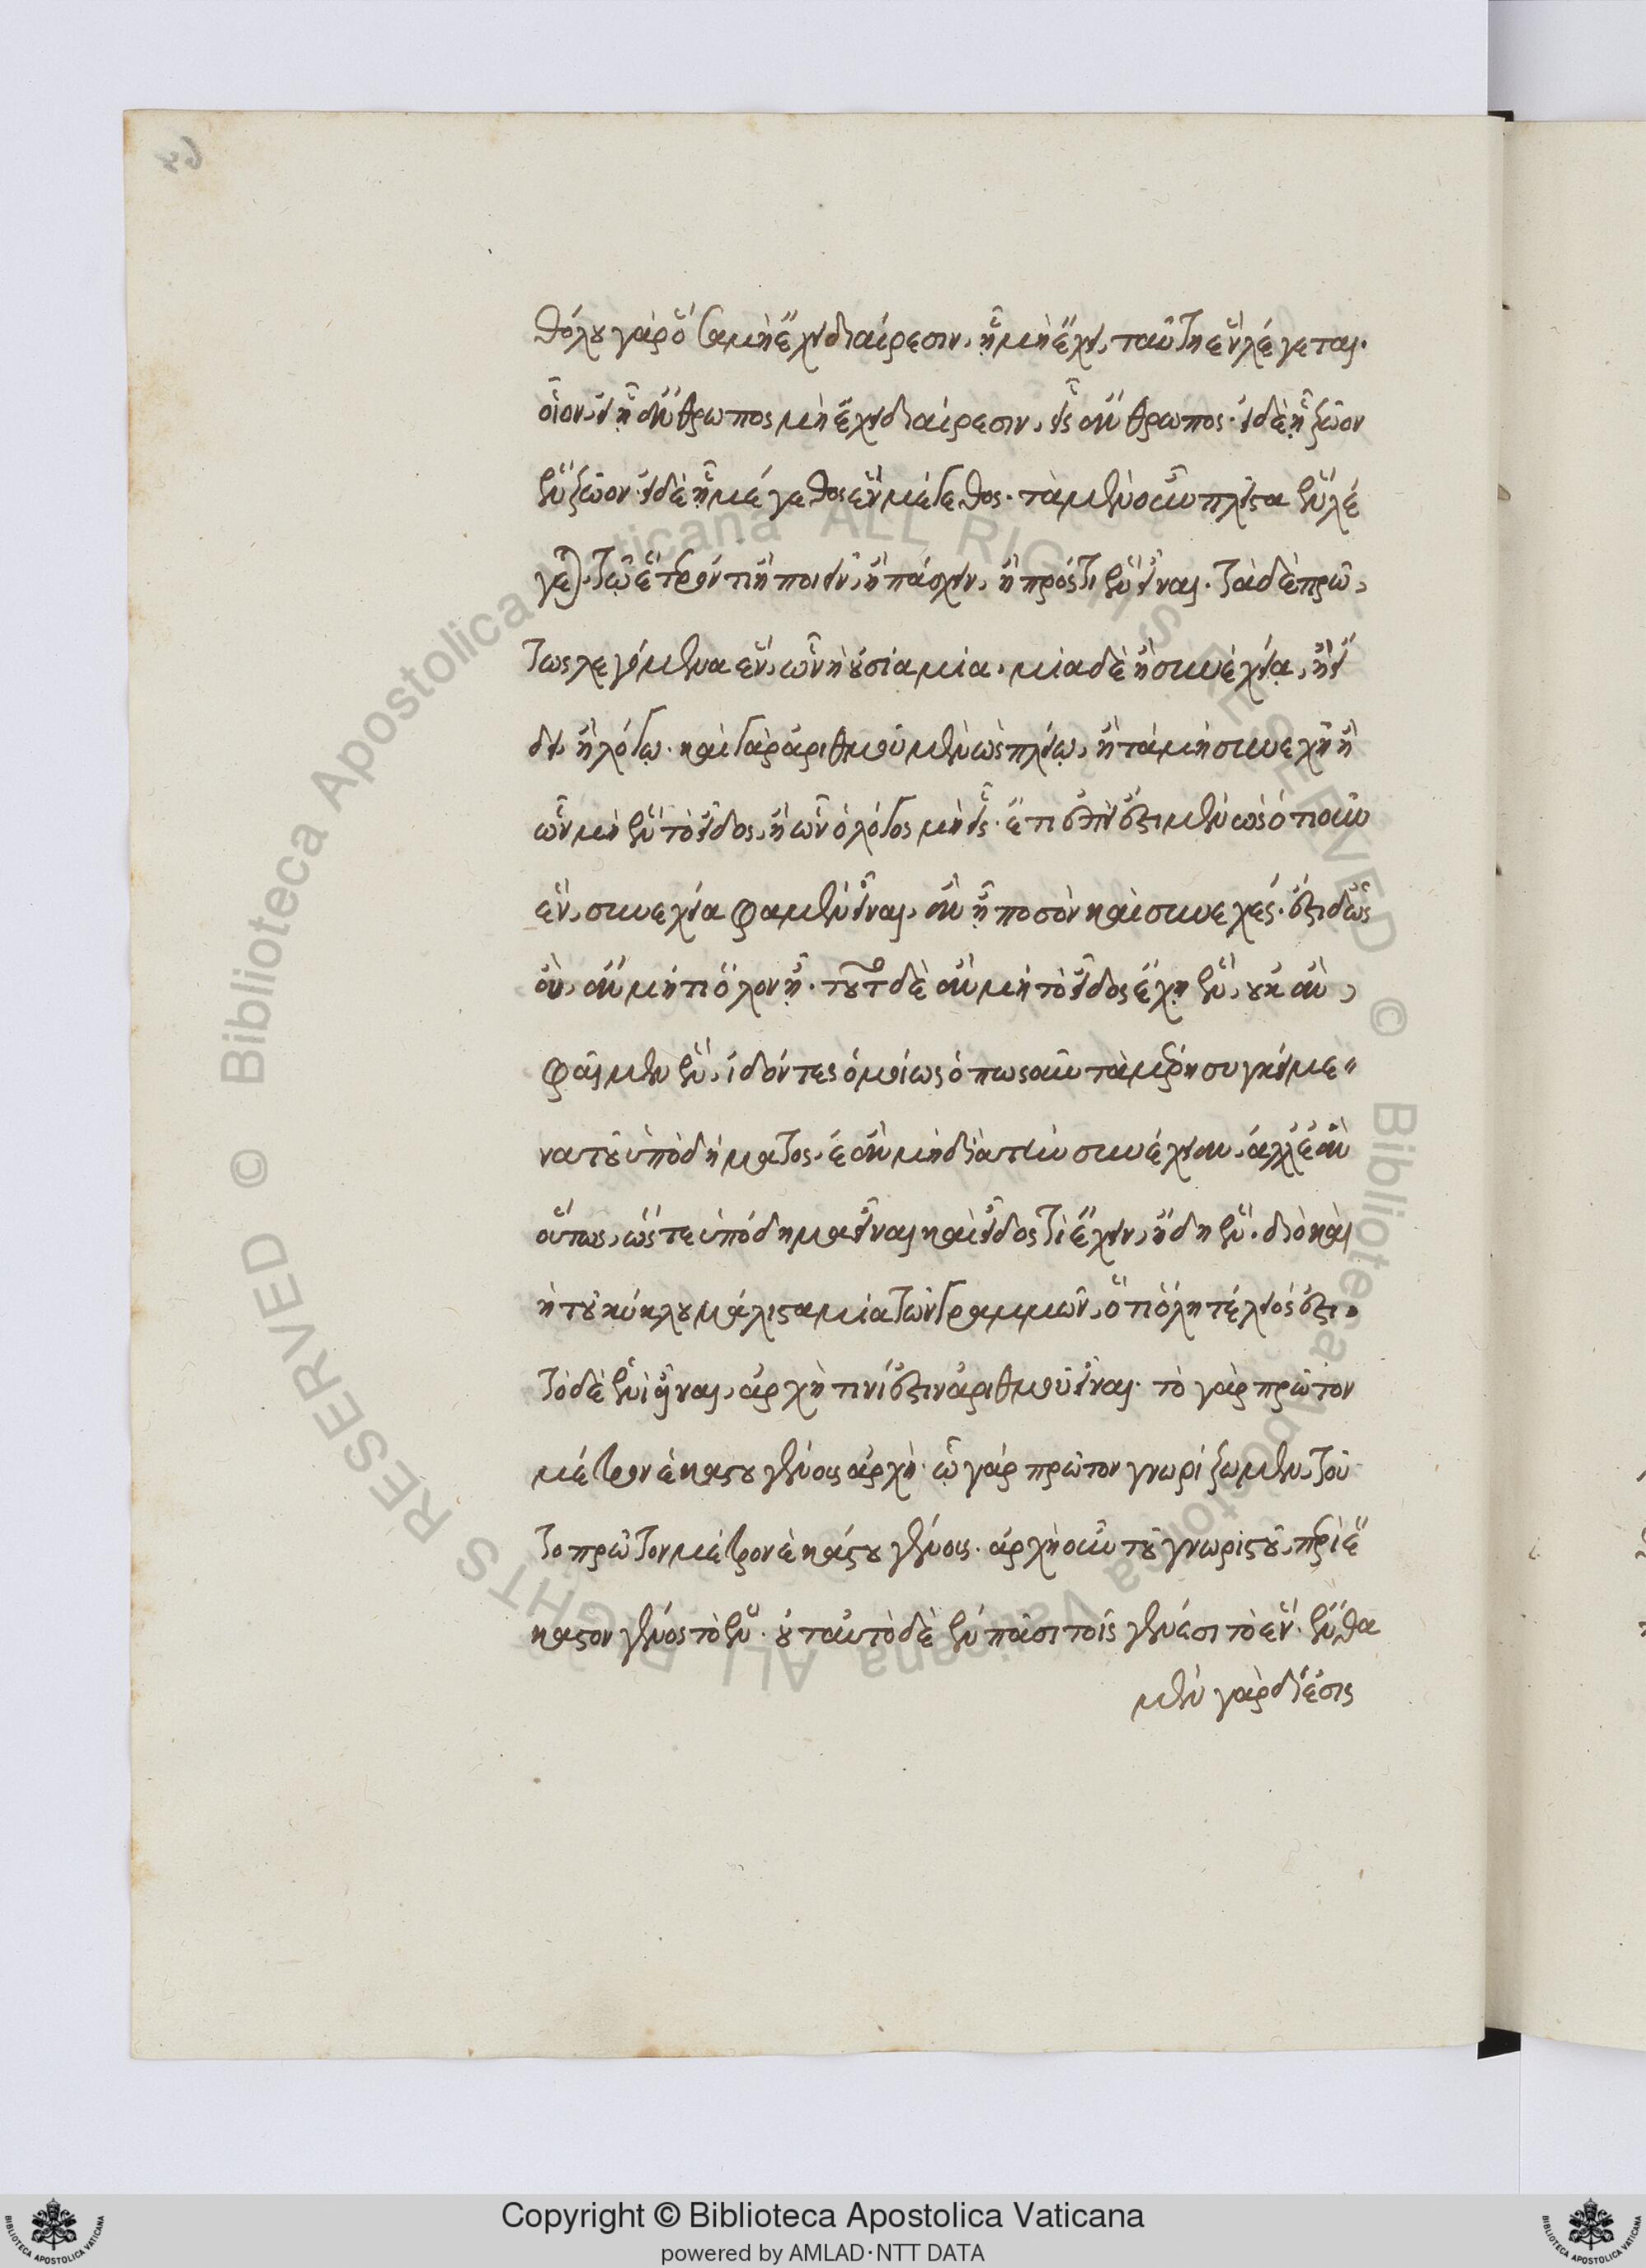 θόλου γὰρ ὅσα μὴ ἔχει διαίρεσιν, ᾗ μὴ ἔχει, ταύτῃ ἓν λέγεται.
οἷον, εἰ ᾗ ἄνθρωπος μὴ ἔχει διαίρεσιν, εἷς ἄνθρωπος. εἰ δὲ ᾗ ζῶον
ἓν ζῶον. εἰ δὲ ᾗ μέγεθος ἓν μέγεθος. τὰ μὲν οὖν πλεῖστα ἓν λέ
γεται. τῷ ἕτερόν τι ἢ ποιεῖν, ἢ πάσχειν, ἢ πρός τι ἓν εἶναι. τὰ δὲ πρώ,
τως λεγόμενα ἕν, ὧν ἡ οὐσία μία. μία δὲ ἢ συνεχείᾳ, ἢ εἴ
δει, ἢ λόγῳ. καὶ γὰρ ἀριθμοῦμεν ὡς πλείω, ἢ τὰ μὴ συνεχῆ ἢ
ὧν μὴ ἓν τὸ εἶδος, ἢ ὧν ὁ λόγος μὴ εἷς. ἔτι δ' ἐπεὶ ἔστι μὲν ὡς ὁτιοῦν
ἕν, συνεχείᾳ φαμὲν εἶναι, ἂν ᾖ ποσὸν καὶ συνεχές. ἔστι δ' ὡς
οὔ, ἂν μή τι ὅλον ᾖ. τοῦτο δὲ ἂν μὴ τὸ εἶδος ἔχῃ ἕν, οὐκ ἂν,
φαῖμεν ἕν, ἰδόντες ὁμοίως ὁπωσοῦν τὰ μέρη συγκείμε-
να τοῦ ὑποδήματος. ἐὰν μὴ διὰ τὴν συνέχειαν, ἀλλ' ἐὰν
οὕτως, ὥστε ὑπόδημα εἶναι καὶ εἶδός τι ἔχειν, ἤδη ἕν. διὸ καὶ
ἡ τοῦ κύκλου μάλιστα μία τῶν γραμμῶν, ὅτι ὅλη τέλειός ἐστι.
τὸ δὲ ἑνὶ εἶναι, ἀρχὴ τινί ἐστιν ἀριθμοῦ εἶναι. τὸ γὰρ πρῶτον
μέτρον ἑκάστου γένους ἀρχή. ᾧ γὰρ πρῶτον γνωρίζωμεν, τοῦ
το πρῶτον μέτρον ἑκάστου γένους. ἀρχὴ οὖν τοῦ γνωριστοῦ, περὶ ἕ
καστον γένος τὸ ἕν. οὐ ταὐτὸ δὲ ἐν πᾶσι τοῖς γένεσι τὸ ἕν. ἔνθα
μὲν γὰρ δίεσις
© Biblioteca Apostolica Vaticana ALL RIGHTS RESERVED © Biblioteca Apostolica Vaticana ALL RIGHTS RESERVED
Copyright © Biblioteca Apostolica Vaticana
powered by AMLAD·NTT DATA